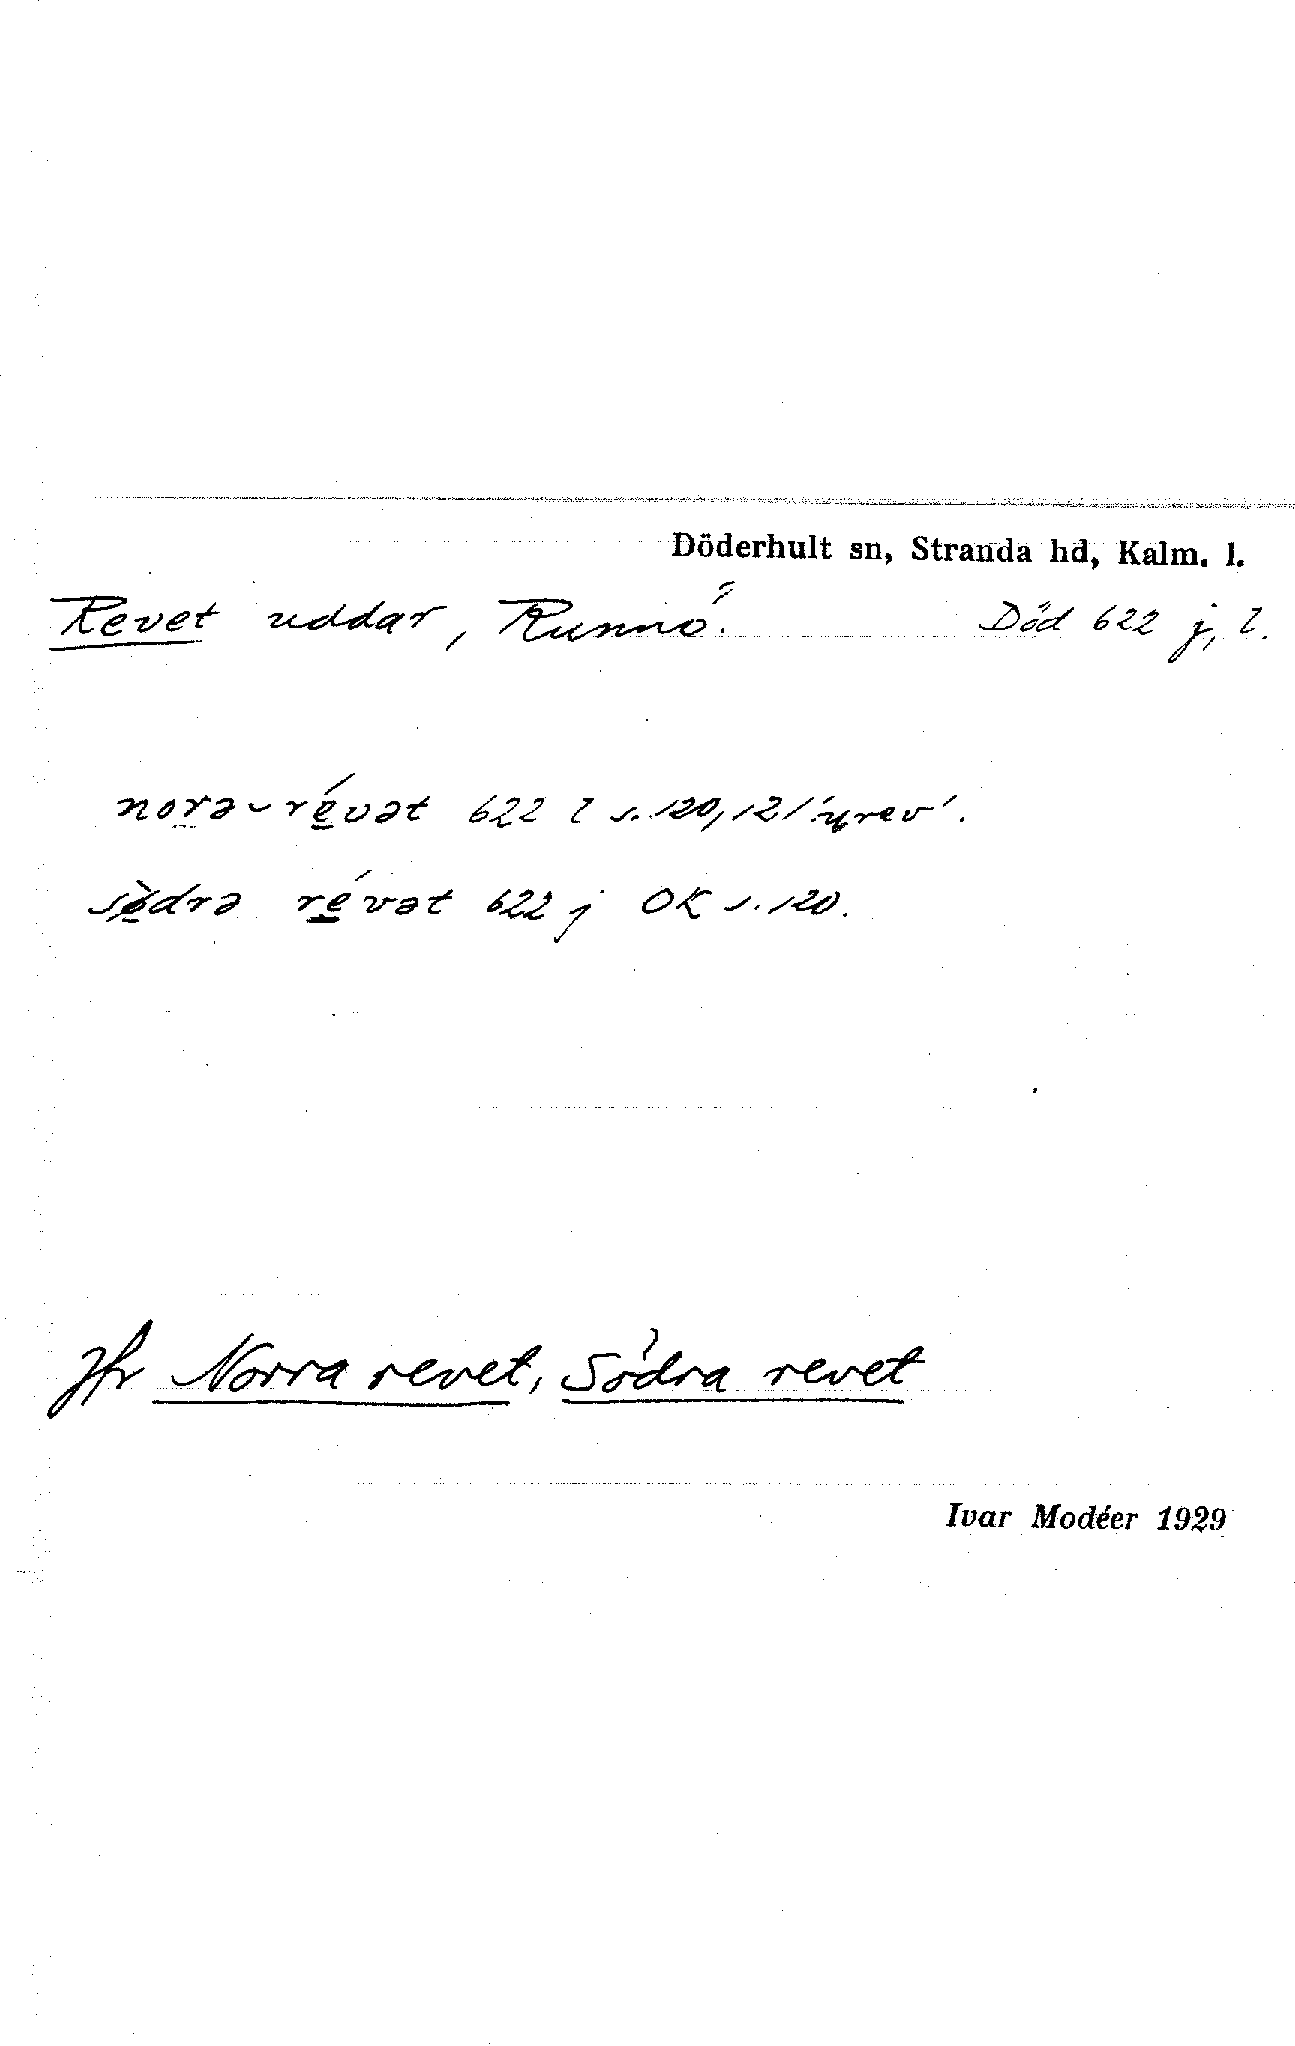 Döderhult sn, Stranda hd, Kalm. l.
Revet uddar, Runnö. Död 622 j, l.
norə-révət 622 l s. 120, 121
sø̀drə révət 622 j OK s. 120.
Jfr Norra revet, Södra revet
Ivar Modéer 1929